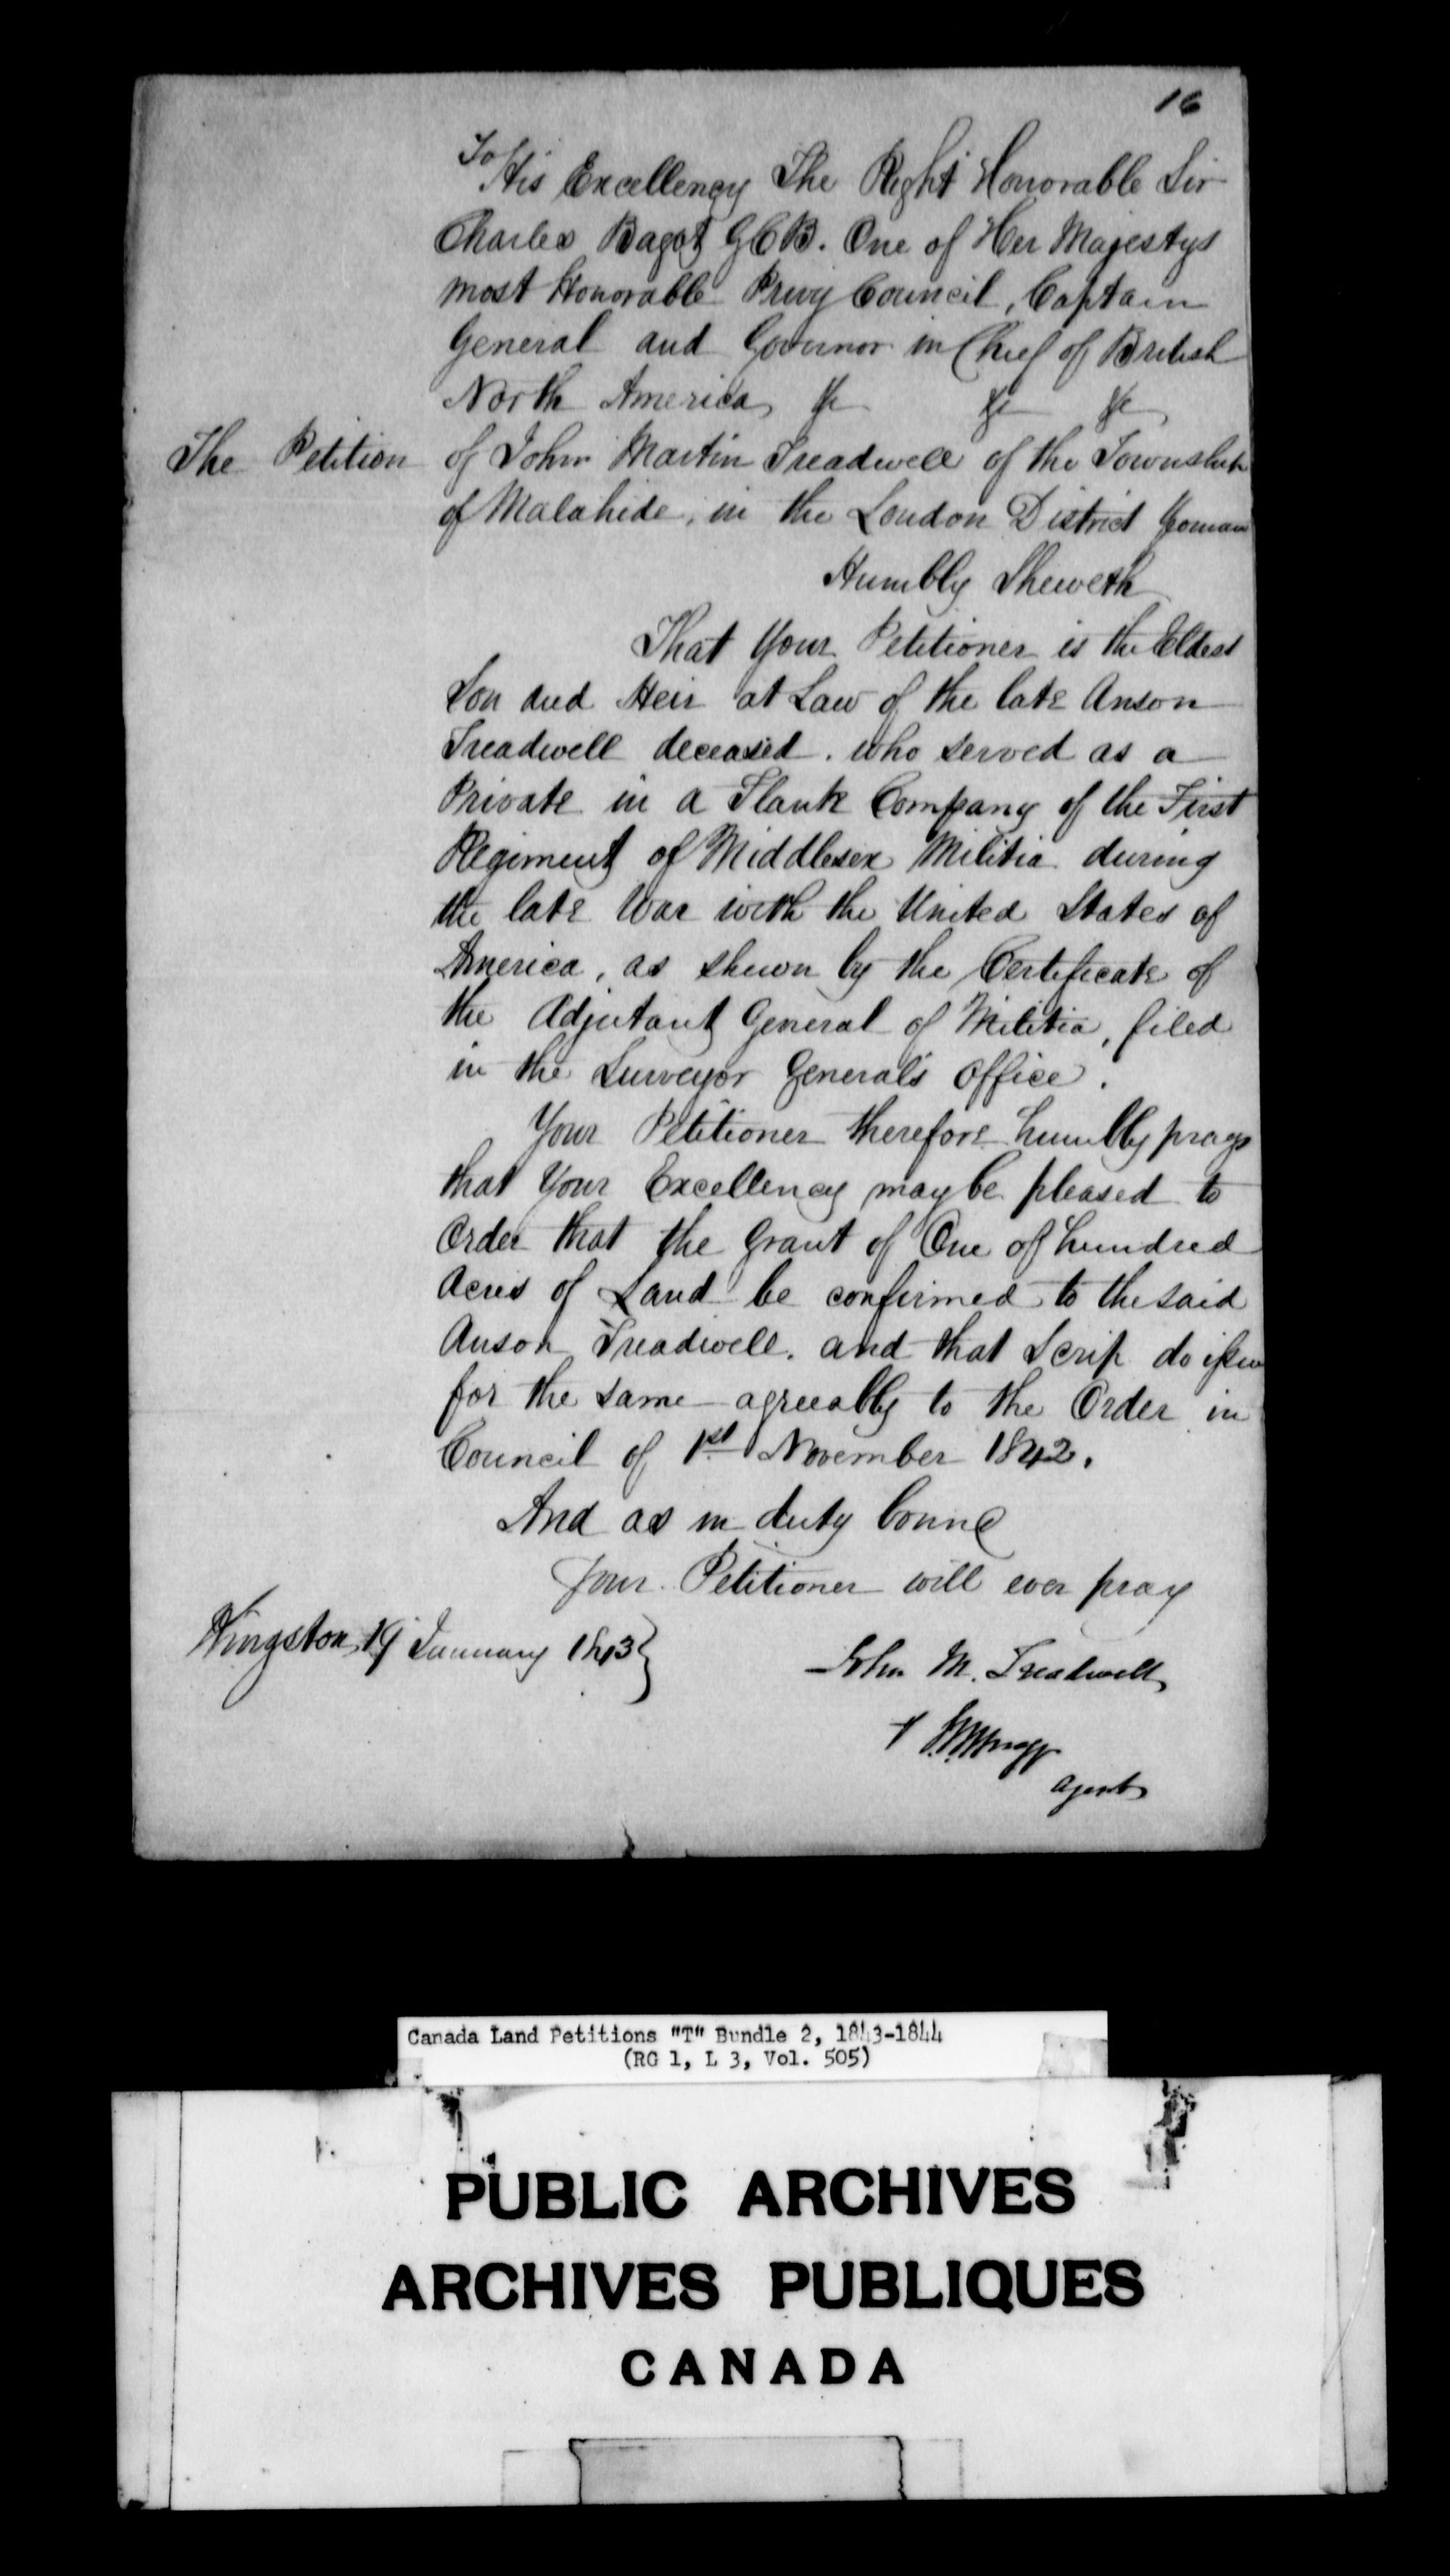 16
To
His Excellency The Right Honorable Sir
Charles Bagot GCB. One of Her Majestys
most Honorable Privy Council, Captain
General and Governor in Chief of British
North America &c &c &c
The Petition of John Martin Treadwell of the Township
of Malahide, in the London District Yeoman
Humbly Sheweth
That Your Petitioner is the Eldest
Son and Heir at Law of the late Anson
Treadwell deceased. who served as a
Private in a Flank Company of the First
Regiment of Middlesex Militia during
the late War with the United States of
America, as shewn by the Certificate of
the Adjutant General of Militia, filed
in the Surveyor General's Office.
Your Petitioner therefore humbly prays
that Your Excellency may be pleased to
Order that the Grant of One of hundred
Acres of Land be confirmed to the said
Anson Treadwell. and that Scrip do issue
for the same agreeably to the Order in
Council of 1st November 1842.
And as in duty bound
Your Petitioner will ever pray
Kingston 19 January 1843
John M. Treadwell
Agent
Canada Land Petitions "T" Bundle 2, 1843-1844
(RG 1, L 3, Vol. 505)
PUBLIC ARCHIVES
ARCHIVES PUBLIQUES
CANADA